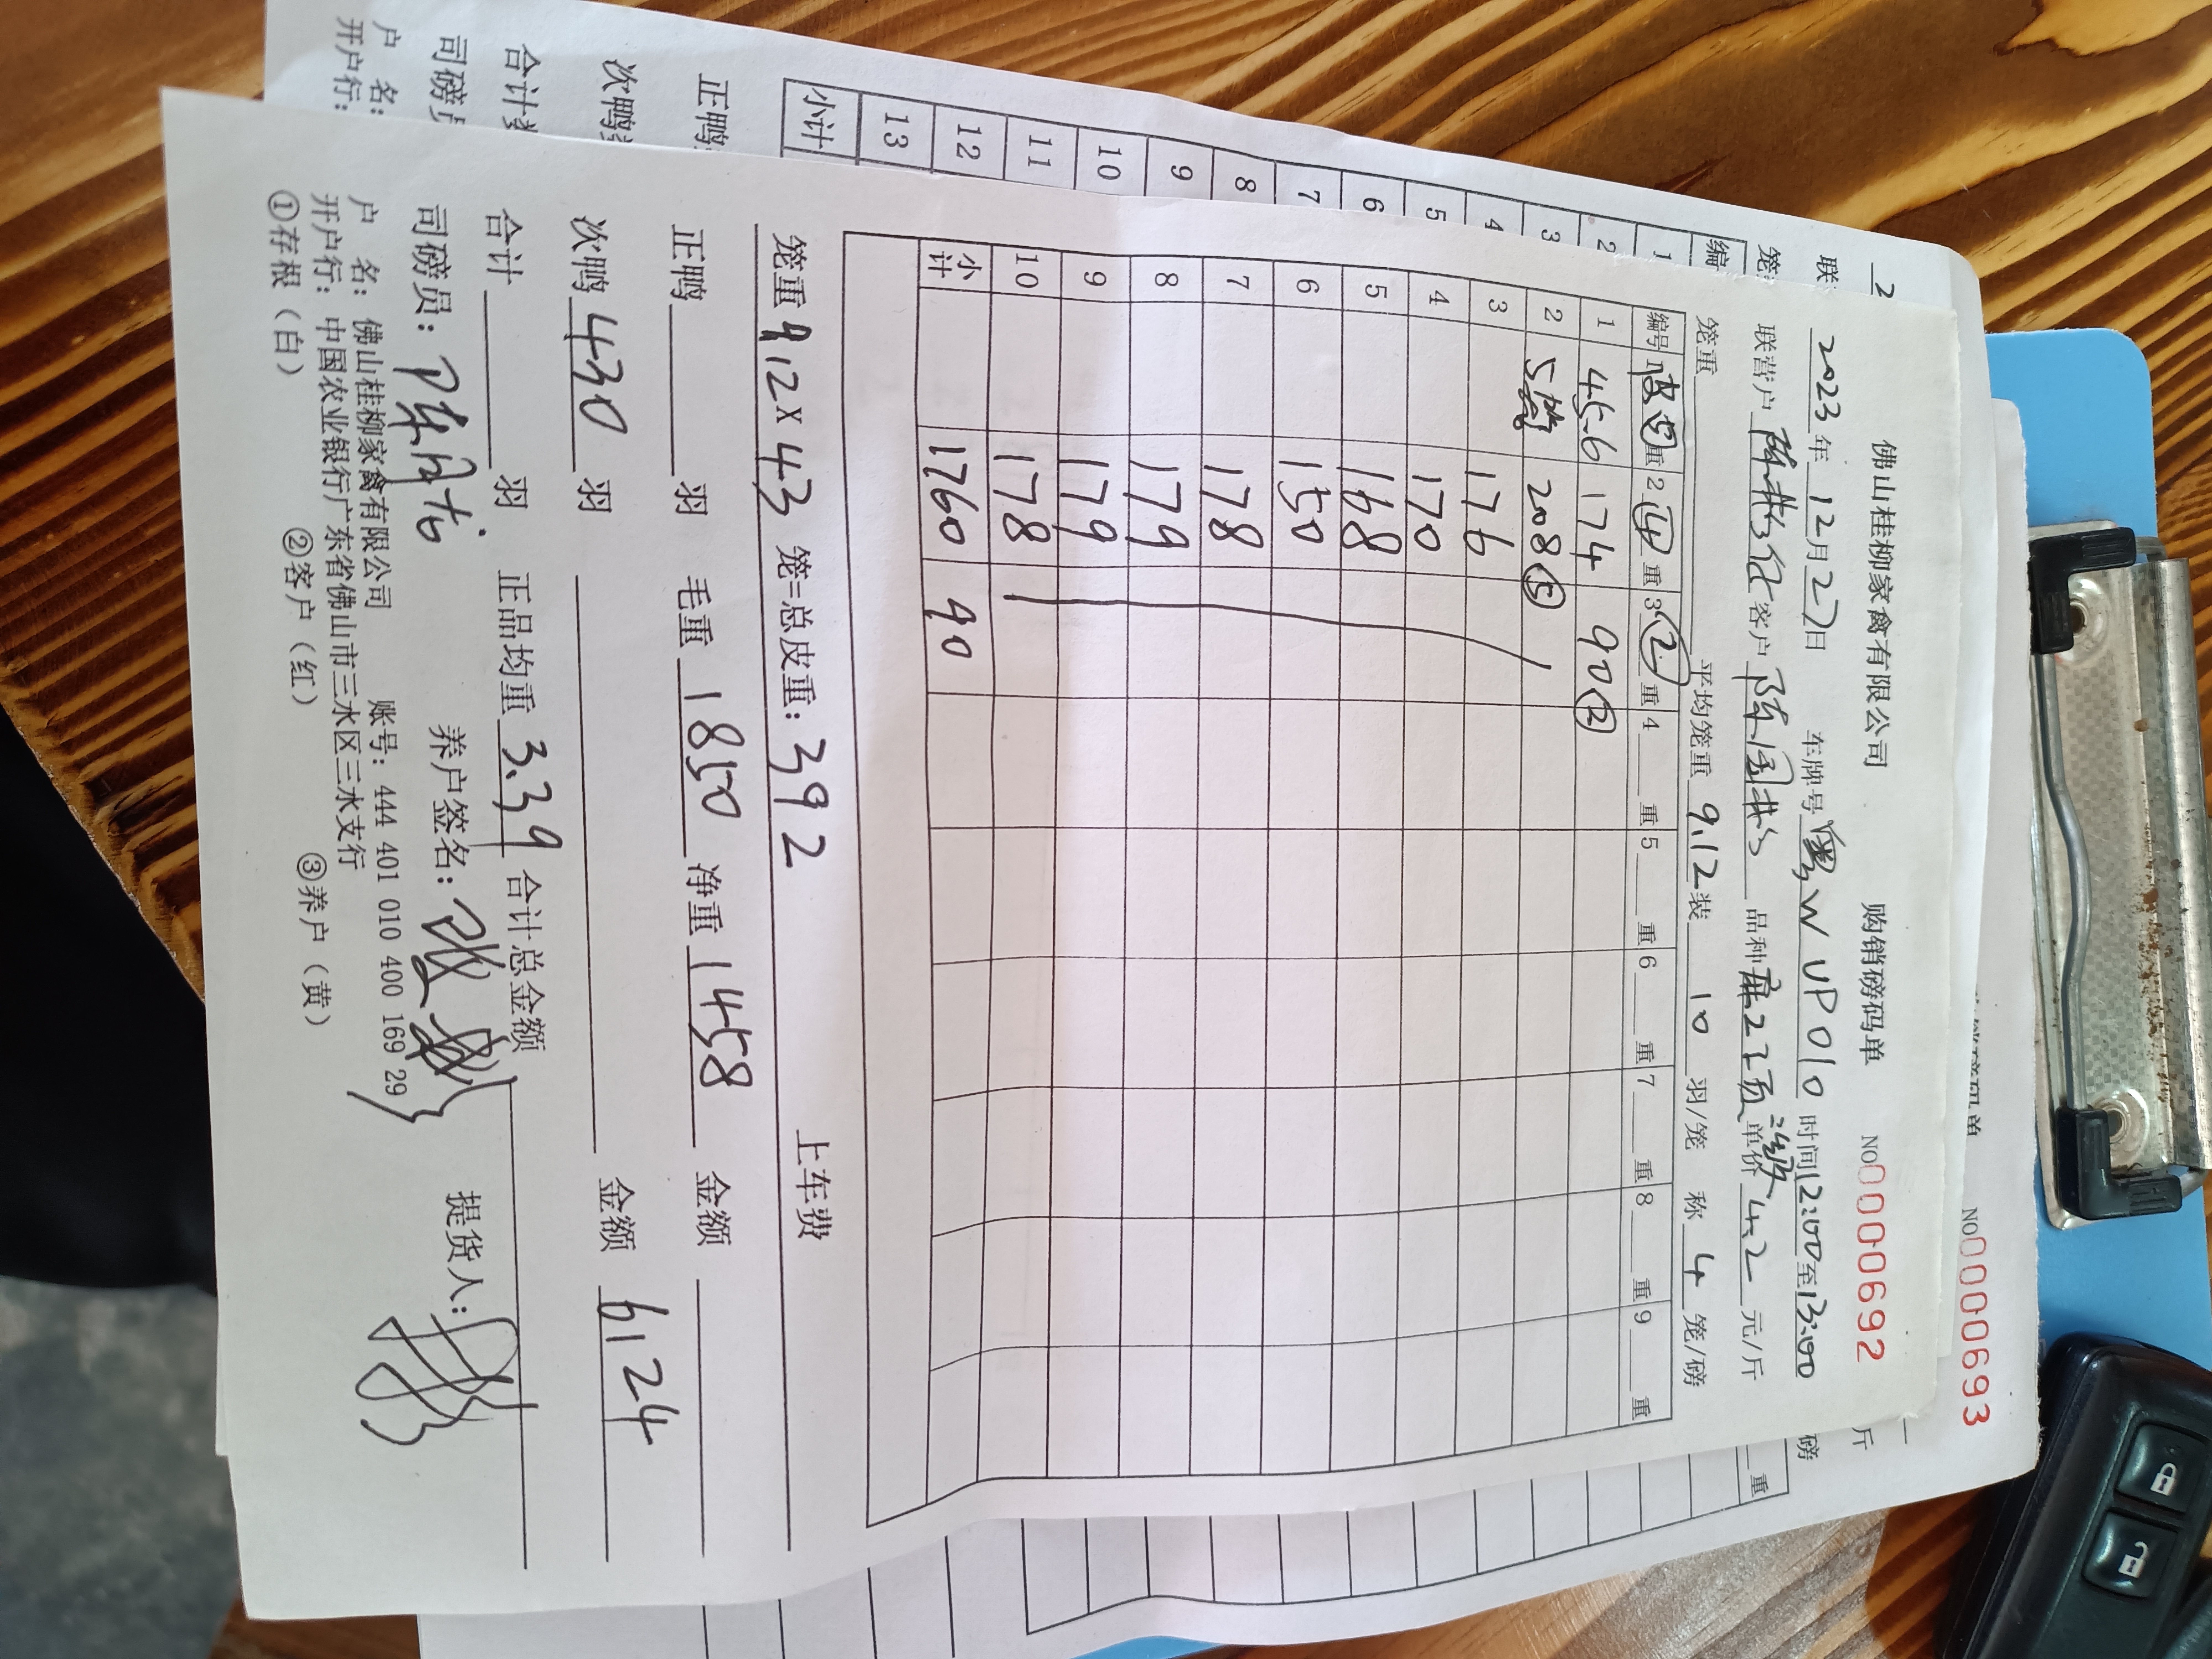 佛山桂柳家禽有限公司 购销磅码单 NO 0000692
2023年12月27日 车牌号 粤W UP010 时间12:00至13:00
联营户 客户 陈国 品种 麻2 单价 4.2 元/斤
笼重 平均笼重 9.12 装 10 羽/笼 称 4 笼/磅
编号 1 皮 重 2 ④ 重 3 ② 重 4 重 5 重 6 重 7 重 8 重 9 重
1 45.6 174 90 ②
2 5笼 208 ⑤
3 176
4 170
5 168
6 150
7 178
8 179
9 179
10 178
小计 1760 90
笼重 9.12 X 43 笼=总皮重: 392 上车费
正鸭 羽 毛重 1850 净重 1458 金额
次鸭 430 羽 金额 6124
合计 羽 正品均重 3.39 合计总金额
司磅员: 陈 养户签名: 提货人:
户 名: 佛山桂柳家禽有限公司 账号: 444 401 010 400 169 29
开户行: 中国农业银行广东省佛山市三水区三水支行
①存根（白） ②客户（红） ③养户（黄）
NO 0000693
2
联
笼
编
1
2
3
4
5
6
7
8
9
10
11
12
13
小计
正鸭
次鸭
合计
司磅员
户 名:
开户行:
斤
磅
重